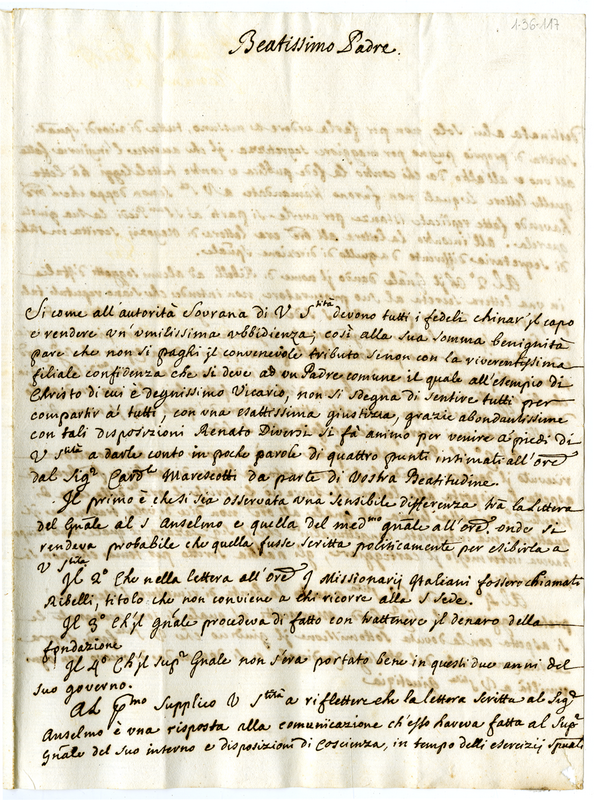 1-36-117
Beatissimo Padre.
Si come all'autorità Sovrana di V Stità devono tutti i fedeli chinar' jl capo
e rendere vn'vmilissima vbbidienza; così alla sua somma benignità
pare che non si paghi jl convenevole tributo senon con la riverentissima
filiale confidenza che si deve ad vn Padre comune il quale all'esempio di
Christo di cui è degnissimo Vicario, non si sdegna di sentire tutti per
compartir à tutti, con vna esattissima giustizia, grazie abondantissime
con tali disposizioni Renato Diversi si fà animo per venire a'piedi di
V Stità a darle conto in poche parole di quattro punti intimati all'Ore
dal Sigr Cardle Marescotti da parte di Vostra Beatitudine.
Jl primo è che si sia osservata vna sensibile differenza trà la lettera
del Gnale al S Anselmo e quella del medmo gnale all'Ore, onde si
rendeva probabile che quella fusse scritta politicamente per esibirla a
V Stità
Jl 2º Che nella lettera all'Ore J Missionarij Jtaliani fossero chiamati
Ribelli, titolo che non conviene a chi ricorre alla S Sede.
Jl 3º Ch'jl gnale procedeva di fatto con trattenere jl denaro della
fondazione
Jl 4º Ch'jl supr Gnale non s'era portato bene in questi due anni del
suo governo.
Al pmo Supplico V Stità a riflettere che la lettera scritta al Sigr
Anselmo è vna risposta alla comunicazione ch'esso haveva fatta al Supr
Gnale del suo interno e disposizioni di coscienza, in tempo delli esercizij spuali